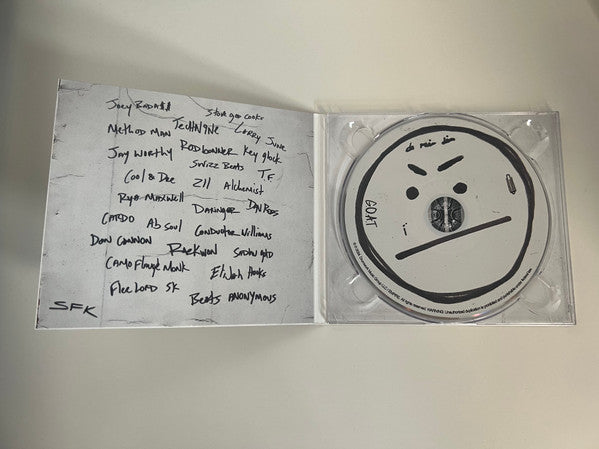 Joey BADA$$
Stove god cooks
Method Man TechN9ne Larry June
Jay Worthy RODbONNER Key glock
Cool & Dre Swizz Beats TF
211 Alchemist
Rya Maxwell DARINGER DAN
CARDO Ab Soul Conductor Williams
Don Cannon RaeKwon
Camoflauge Monk Elijah Hooks
Flee LORD SK
Beats ANONYMOUS
SFK
GOAT